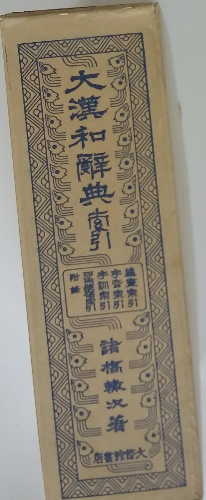 大漢和辭典索引
總畫索引
字音索引
字訓索引
四角號碼索引
附錄
諸橋轍次著
大修館書店